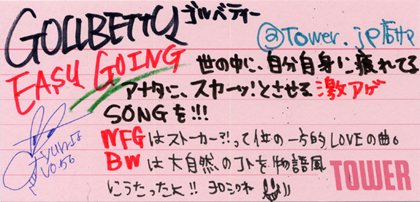 GOLLBETTY ゴルバティー
@Tower.jpさん江
EASY GOING
世の中に、自分自身に疲れてる
アナタに、スカーッ!とさせる激アゲ
SONGを!!!
NFGはストーカー?!って位の一方的LOVEの曲。
BWは大自然のコトを物語風
にうたったよ!! ヨロシクね
TOWER